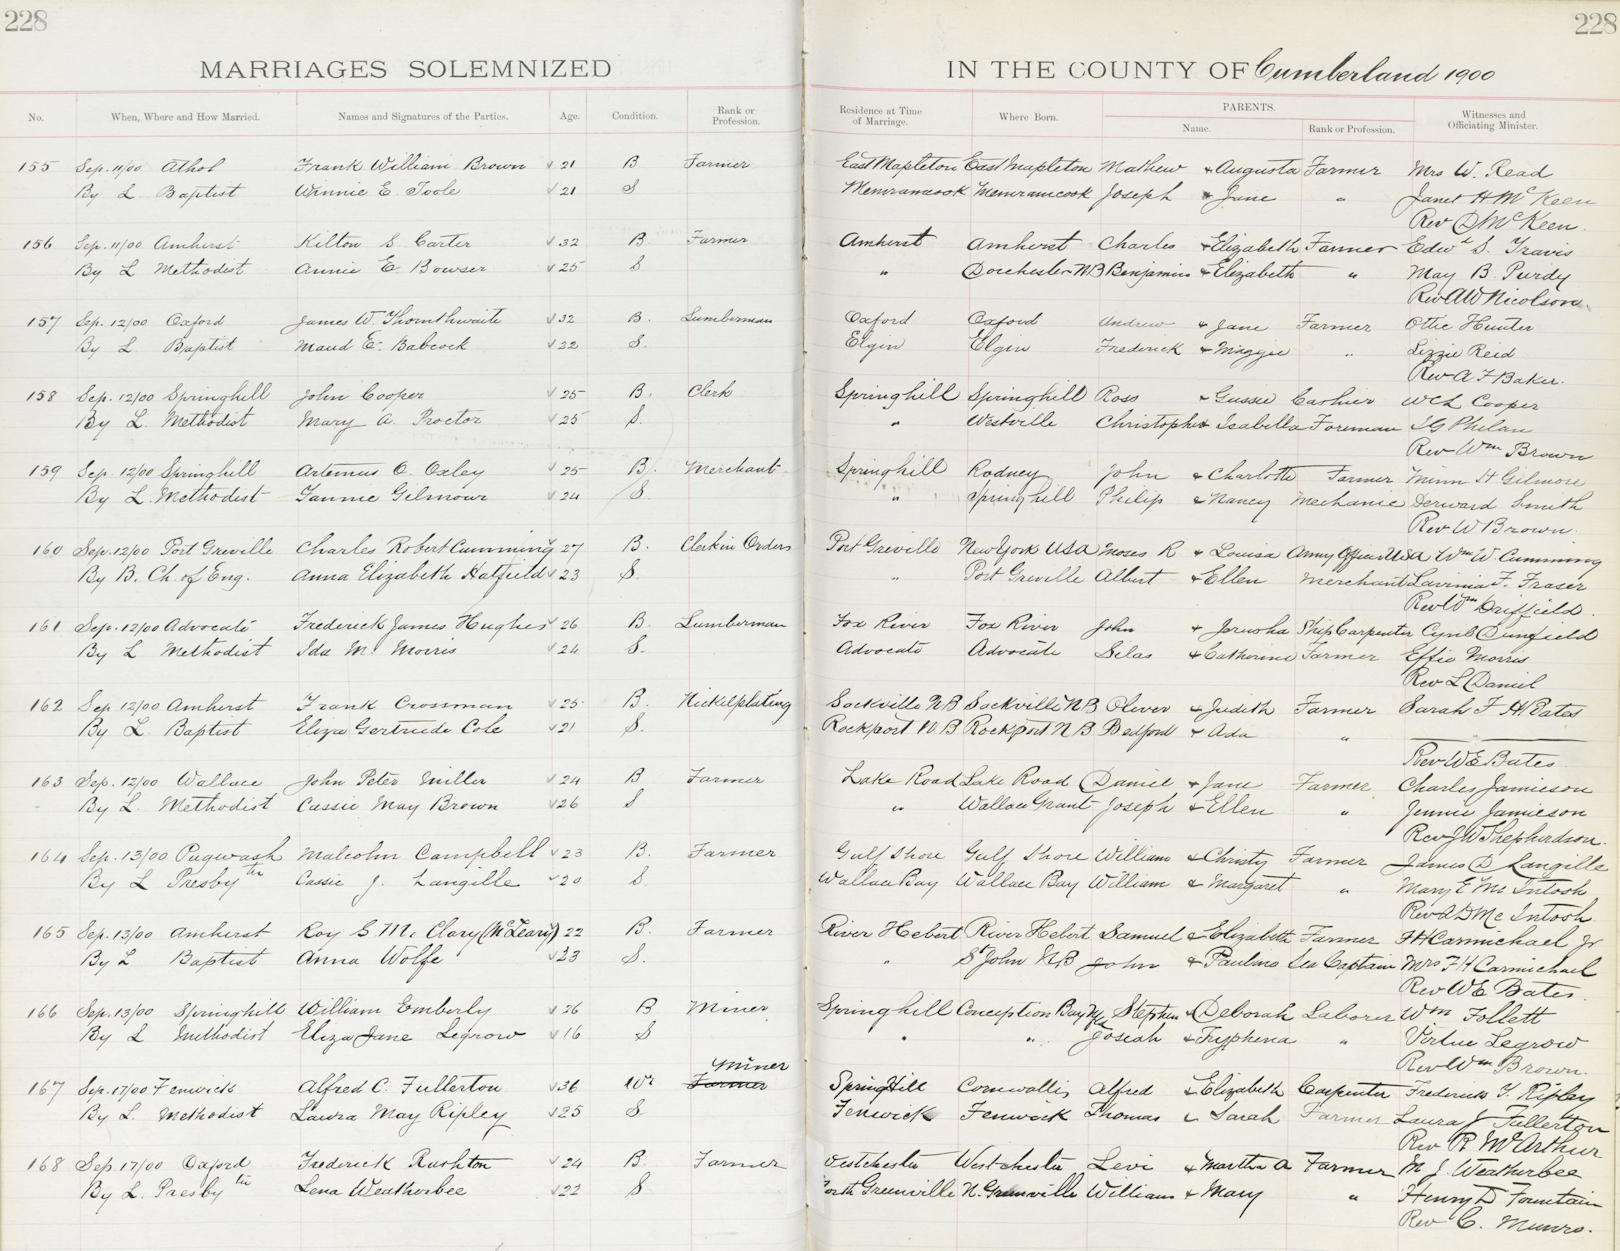 228
228
MARRIAGES SOLEMNIZED IN THE COUNTY OF Cumberland 1900
No. When, Where and How Married. Names and Signatures of the Parties. Age. Condition. Rank or Profession. Residence at Time of Marriage. Where Born. PARENTS. Name. Rank or Profession. Witnesses and Officiating Minister.
155 Sep. 11/00 Athol Frank William Brown 21 B Farmer East Mapleton East Mapleton Mathew & Augusta Farmer Mrs W. Read
By L Baptist Winnie E. Toole 21 S Memramcook Memramcook Joseph & Jane " Janet H McKeen
Rev D McKeen
156 Sep. 11/00 Amherst Kilton S. Carter 32 B Farmer Amherst Amherst Charles & Elizabeth Farmer Edwd S Travis
By L Methodist Annie E. Bowser 25 S " Dorchester NB Benjamin & Elizabeth " May B. Purdy
Rev AW Nicolson
157 Sep. 12/00 Oxford James W. Thornthwaite 32 B. Lumberman Oxford Oxford Andrew & Jane Farmer Ottie Hunter
By L. Baptist Maud E. Babcock 22 S. Elgin Elgin Frederick & Maggie " Lizzie Reid
Rev A F Baker.
158 Sep. 12/00 Springhill John Cooper 25 B. Clerk Springhill Springhill Ross & Gussie Cashier WCL Cooper
By L. Methodist Mary A. Proctor 25 S. " Westville Christopher & Isabella Foreman Phelan
Rev Wm Brown
159 Sep. 12/00 Springhill Artemus C. Oxley 25 B. Merchant Springhill Rodney John & Charlotte Farmer Minn H Gilmore
By L. Methodist Fannie Gilmour 24 S. " Springhill Philip & Nancy Mechanic Derward Smith
Rev W Brown.
160 Sep. 12/00 Port Greville Charles Robert Cumming 27 B. Clerk in Orders Port Greville New York USA Moses R & Louisa Army Officer USA Wm W. Cumming
By B. Ch. of Eng. Anna Elizabeth Hatfield 23 S. " Port Greville Albert & Ellen Merchant Lavinia F. Fraser
Rev Wm Driffield.
161 Sep. 12/00 Advocate Frederick James Hughes 26 B. Lumberman Fox River Fox River John & Jerusha Ship Carpenter
By L Methodist Ida M. Morris 24 S. Advocate Advocate Silas & Catherine Farmer Effie Morris
Rev L Daniel
162 Sep. 12/00 Amherst Frank Crossman 25 B. Nickelplating Sackville NB Sackville NB Oliver & Judith Farmer Sarah F
By L Baptist Eliza Gertrude Cole 21 S. Rockport NB Rockport NB Bedford & Ada "
Rev WE Bates
163 Sep. 12/00 Wallace John Peter Miller 24 B Farmer Lake Road Lake Road Daniel & Jane Farmer Charles Jamieson
By L. Methodist Cassie May Brown 26 S " Wallace Grant Joseph & Ellen " Jennie Jamieson
Rev J W Shepherdson.
164 Sep. 13/00 Pugwash Malcolm Campbell 23 B. Farmer Gulf Shore Gulf Shore William & Christy Farmer James D Langille
By L Presbytn Cassie J. Langille 20 S. Wallace Bay Wallace Bay William & Margaret " Mary E McIntosh
Rev AD McIntosh
165 Sep. 13/00 Amherst Roy G. McClary (McLeary) 22 B. Farmer River Hebert River Hebert Samuel & Elizabeth Farmer F H Carmichael Jr
By L Baptist Anna Wolfe 23 S. " St John NB John & Paulina Sea Captain Mrs F H Carmichael
Rev WE Bates.
166 Sep. 13/00 Springhill William Emberly 26 B Miner Springhill Conception Bay Nfld Stephen & Deborah Laborer Wm Follett
By L Methodist Eliza Jane Legrow 16 S " " Josiah & Tryphena " Virtue Legrow
Rev Wm Brown.
167 Sep. 17/00 Fenwick Alfred C. Fullerton 36 Wr Farmer Miner SpringHill Cornwallis Alfred & Elizabeth Carpenter Frederick F. Ripley
By L. Methodist Laura May Ripley 25 S. Fenwick Fenwick Thomas & Sarah Farmer Laura J Fullerton
Rev R McArthur
168 Sep. 17/00 Oxford Frederick Rushton 24 B. Farmer Westchester Westchester Levi & Martha A Farmer M J. Weatherbee
By L. Presbytn Lena Weatherbee 22 S North Greenville N. Greenville William & Mary " Henry D Fountain
Rev C. Munro.